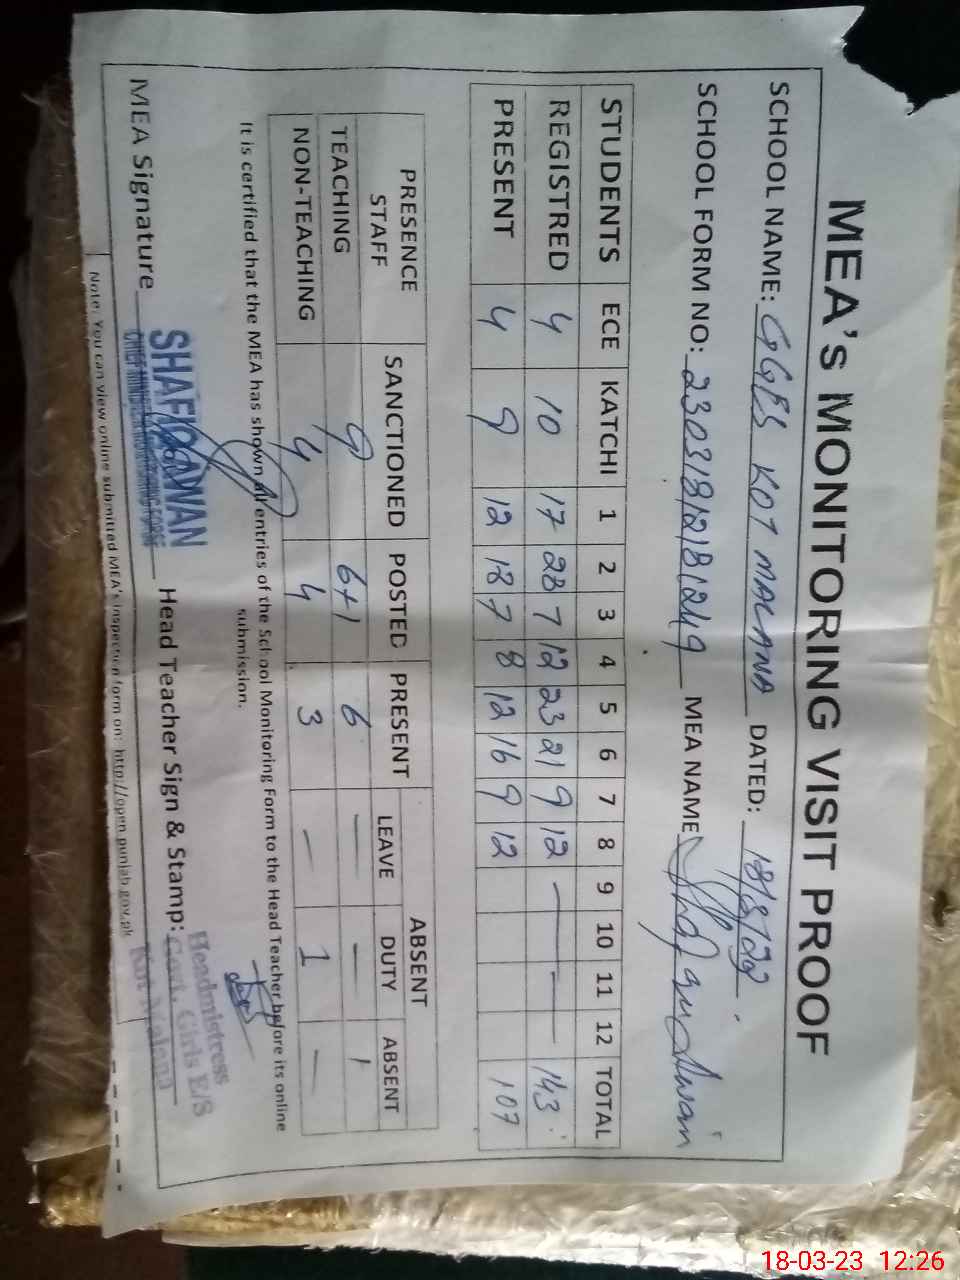 MEA's MONITORING VISIT PROOF
SCHOOL NAME: GGES KOT MALANA DATED: 18/3/23
SCHOOL FORM NO: 230318121811249 MEA NAME Awan
STUDENTS ECE KATCHI 1 2 3 4 5 6 7 8 9 10 11 12 TOTAL
REGISTRED 4 10 17 28 7 12 23 21 9 12 — 143
PRESENT 4 9 12 18 7 8 12 16 9 12 107
PRESENCE STAFF SANCTIONED POSTED PRESENT ABSENT
LEAVE DUTY ABSENT
TEACHING 9 6+1 6 — — 1
NON-TEACHING 4 4 3 — 1 —
It is certified that the MEA has shown all entries of the School Monitoring Form to the Head Teacher before its online
submission.
MEA Signature SHAFIQ AWAN Head Teacher Sign & Stamp: Headmistress
CHIEF MINISTER MONITORING FORCE Govt. Girls E/S
Kot Malana
Note: You can view online submitted MEA's inspection form on: http://open.punjab.gov.pk
18-03-23 12:26